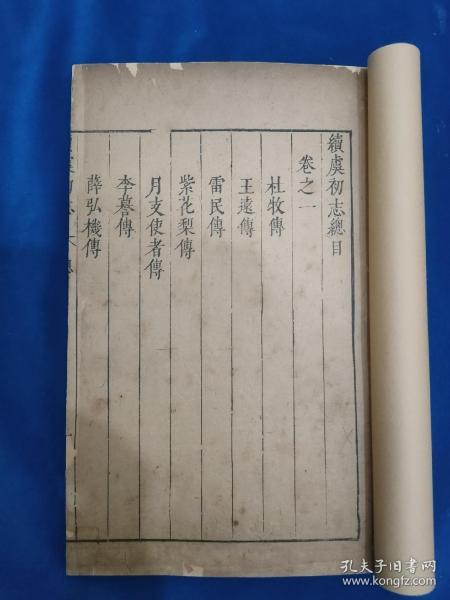 續虞初志總目
卷之一
杜牧傳
王遠傳
雷民傳
紫花梨傳
月支使者傳
李謩傳
薛弘機傳
孔夫子旧书网
www.kongfz.com